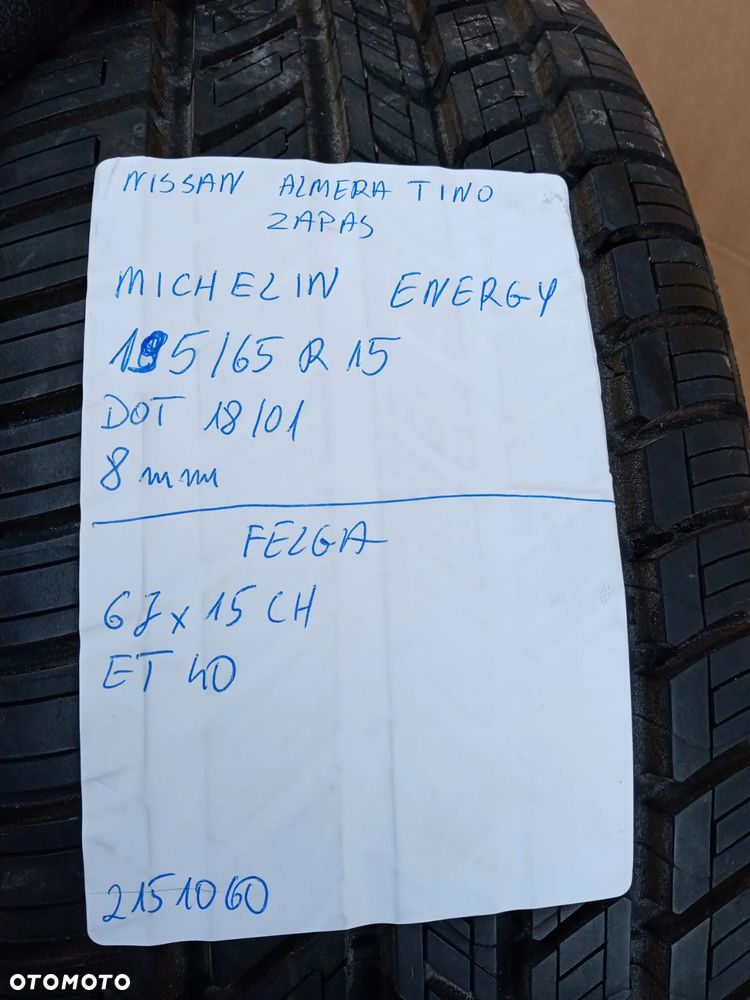 NISSAN ALMERA TINO
ZAPAS
MICHELIN ENERGY
185/65 R 15
DOT 18/01
8 mm
FELGA
6J x 15 CH
ET 40
2151060
OTOMOTO